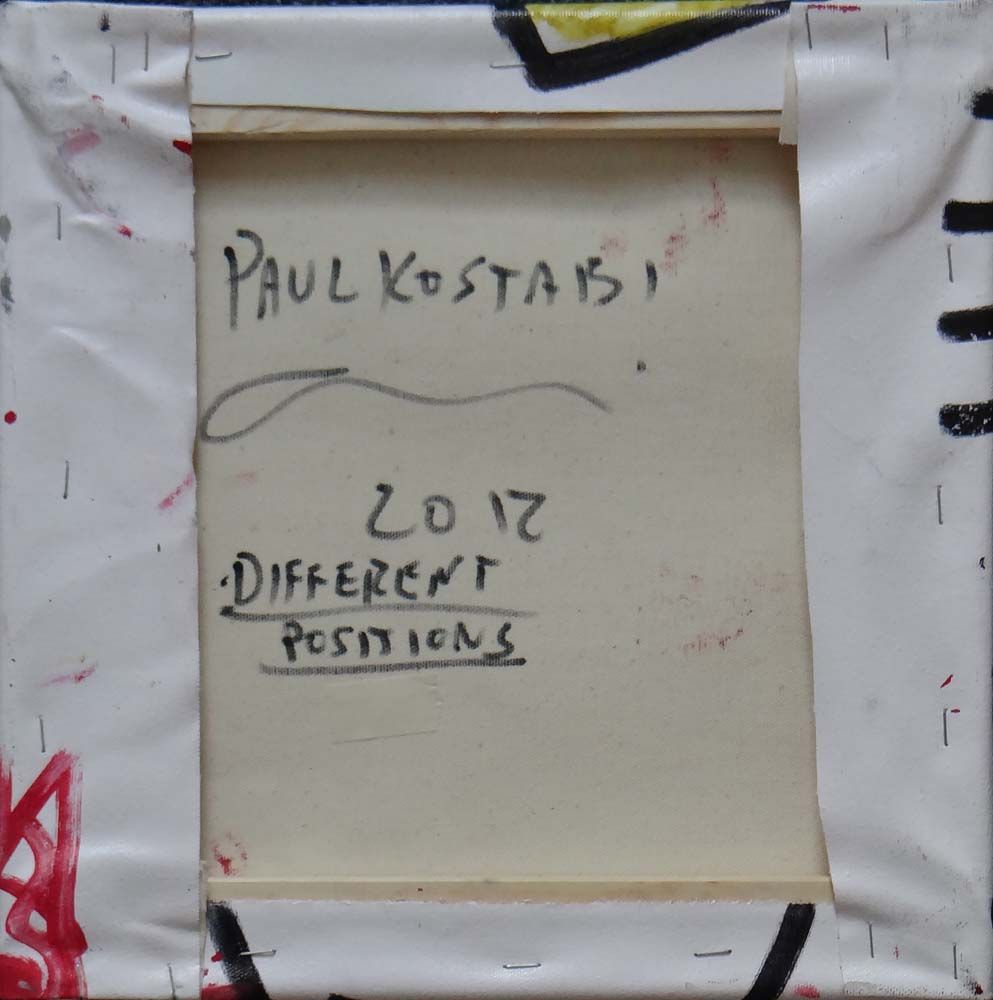 PAUL KOSTABI
2012
DIFFERENT
POSITIONS